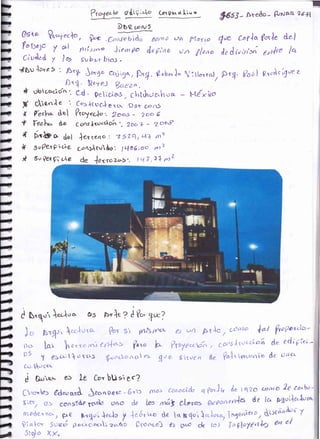 Proyecto edificio Corporativo
DOS CONOS
Este Proyecto, fue concebido como un Marco que corta Parte del
Paisaje y al mismo tiempo define un Plano de división entre la
Ciudad y los suburbios.
Arq. Jorge
Arq. Reyes Baeza.
* ubicación: Cd. Delicias, Chihuahua - México
* cliente: Constructora Dos conos
* Fecha del Proyecto: 2005 - 2006
* Fecha de construcción: 2007 - 2008
del terreno: m²
* superficie construida: m²
* superficie de m²
¿ Arquitectura es Arte? ¿Por que?
La Arquitectura Por si misma es un Arte, como tal Proporcio-
na las herramientas Para la Proyección, construcción de edificio-
s y estructuras funcionales que sirven de Patrimonio de una
cultura.
¿ Quien es le Corbusier?
Charles Edouard Jeanneret-Gris mas conocido a partir de 1920 como Le Corbu-
sier, es considerado uno de los más claros exponentes de la arquitectura
moderna, fue Arquitecto y teórico de la arquitectura, ingeniero, diseñador y
Pintor suizo nacionalizado Francés es uno de los influyentes en el
Siglo XX.